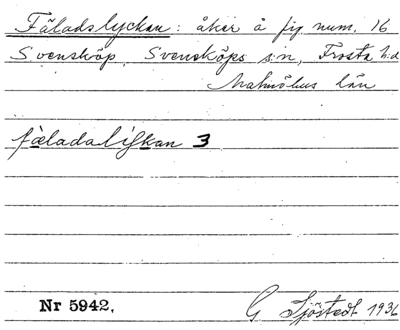 Fäladslyckan: åker å fig num. 16
Svensköp, Svensköps s:n, Frosta h:d
Malmöhus län
fäladalyckan 3
Nr 5942.
G Sjöstedt 1936